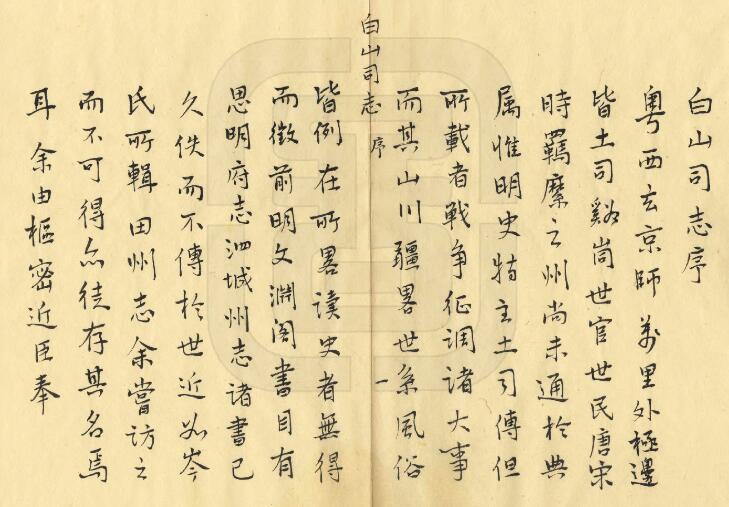 白山司志序
粤西去京師萬里外極邊
皆土司谿峝世官世民唐宋
時羈縻之州尚未通於典
属惟明史特主土司傳但
所載者戰争征調諸大事
而其山川疆畧世系風俗
白山司志 序 一
皆例在所畧讀史者無得
而徵前明文淵阁書目有
思明府志泗城州志諸書已
久佚而不傳於世近如岑
氏所輯田州志余嘗訪之
而不可得亦徒存其名焉
耳余由樞密近臣奉